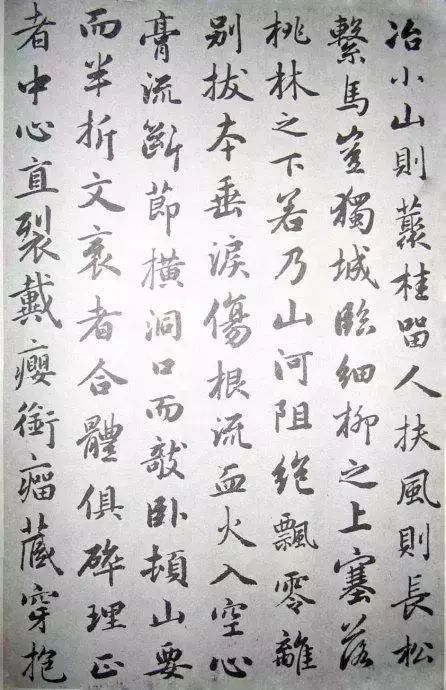 冶小山則藂桂留人扶風則長松
繫馬豈獨城臨細柳之上塞落
桃林之下若乃山河阻絶飄零離
别拔本垂淚傷根流血火入空心
膏流斷節橫洞口而敧卧頓山要
而半折文衺者合體俱碎理正
者中心直裂戴癭銜瘤藏穿抱